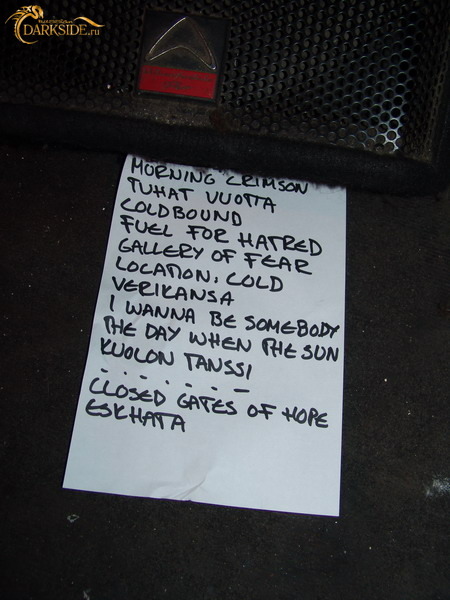 DARKSIDE.ru
MORNING CRIMSON
TUHAT VUOTTA
COLDBOUND
FUEL FOR HATRED
GALLERY OF FEAR
LOCATION: COLD
VERIKANSA
I WANNA BE SOMEBODY
THE DAY WHEN THE SUN
KUOLON TANSSI
- - - - - - -
CLOSED GATES OF HOPE
ESKHATA